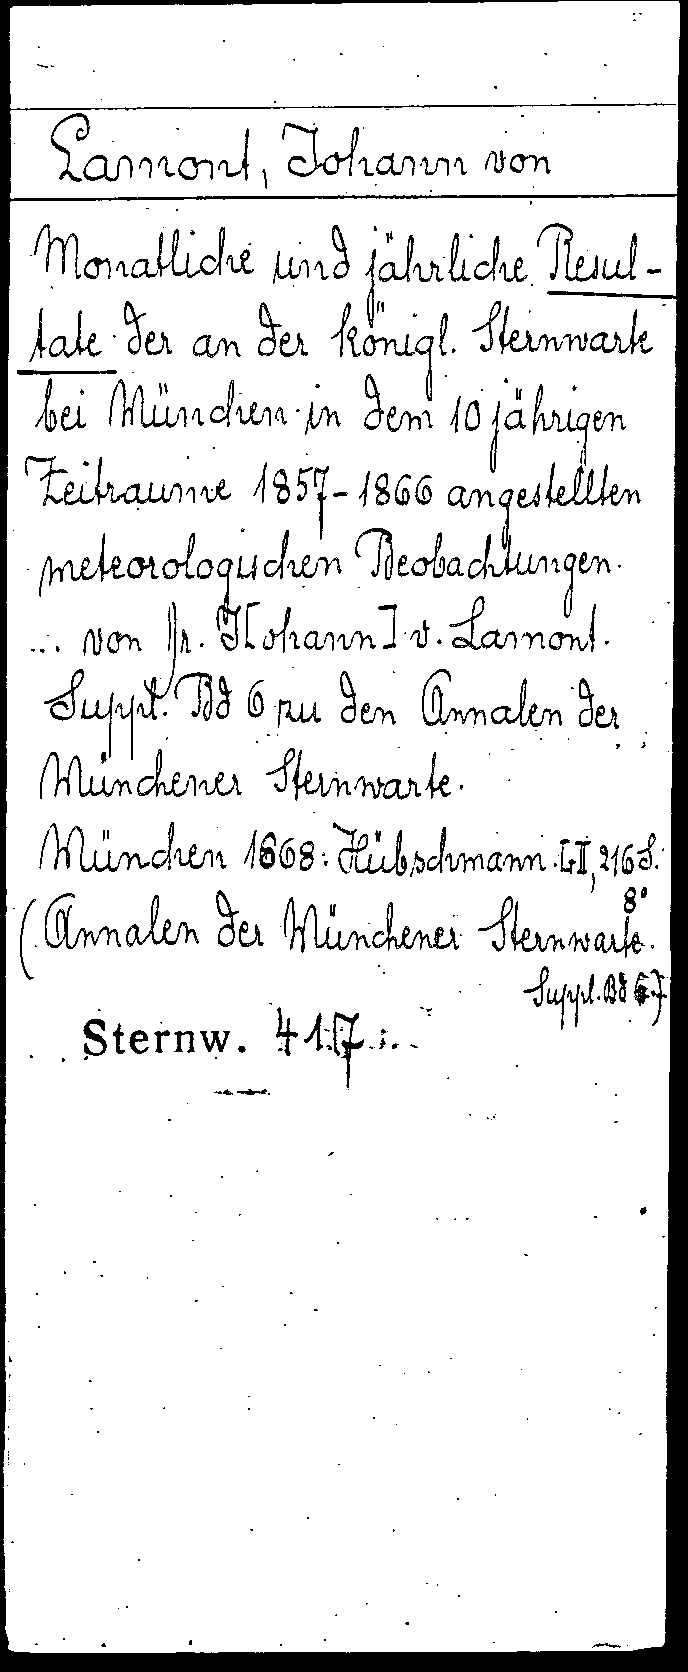 Lamont, Johann von
Monatliche und jährliche Resul-
tate der an der königl. Sternwarte
bei München in dem 10 jährigen
Zeitraume 1857-1866 angestellten
meteorologischen Beobachtungen.
... von Dr. J[ohann] v. Lamont.
Suppl. Bd 6 zu den Annalen der
Münchener Sternwarte.
München 1868: Hübschmann. LII, 216 S.
8°
(Annalen der Münchener Sternwarte.
Suppl. Bd 6.)
Sternw. 417